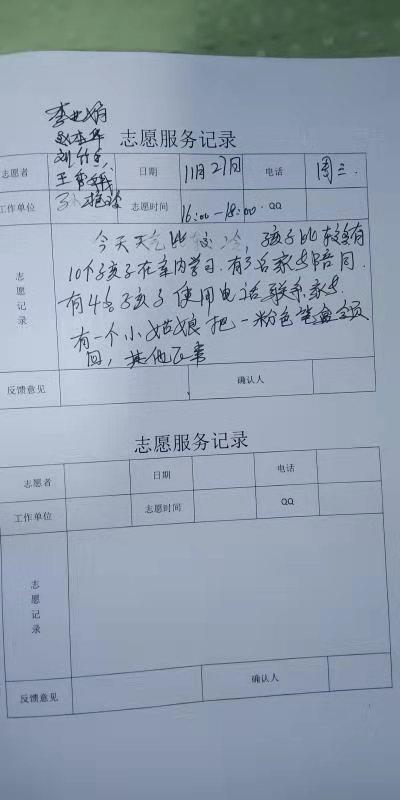 李
志愿服务记录
志愿者 刘 王 日期 11月27日 电话 周三.
工作单位 志愿时间 16:00-18:00. QQ
今天天气比较冷,孩子比较有
志愿记录
10个孩子在车内学习.有3名家长陪同.
有4名孩子使用电话联系家长
有一个小姑娘把一粉色笔盒
回,其他正常
反馈意见 确认人
志愿服务记录
志愿者 日期 电话
工作单位 志愿时间 QQ
志愿记录
反馈意见 确认人